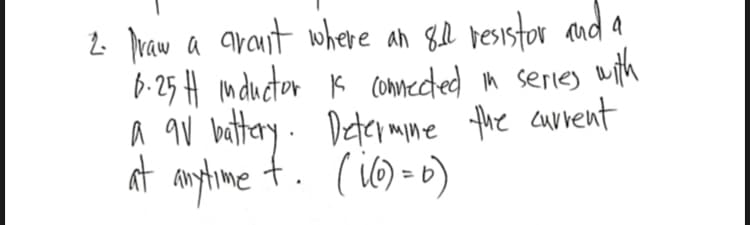 2. Draw a circuit where an 8Ω resistor and a
6.25 H inductor is connected in series with
a 9V battery. Determine the current
at anytime t. (i(0) = 0)